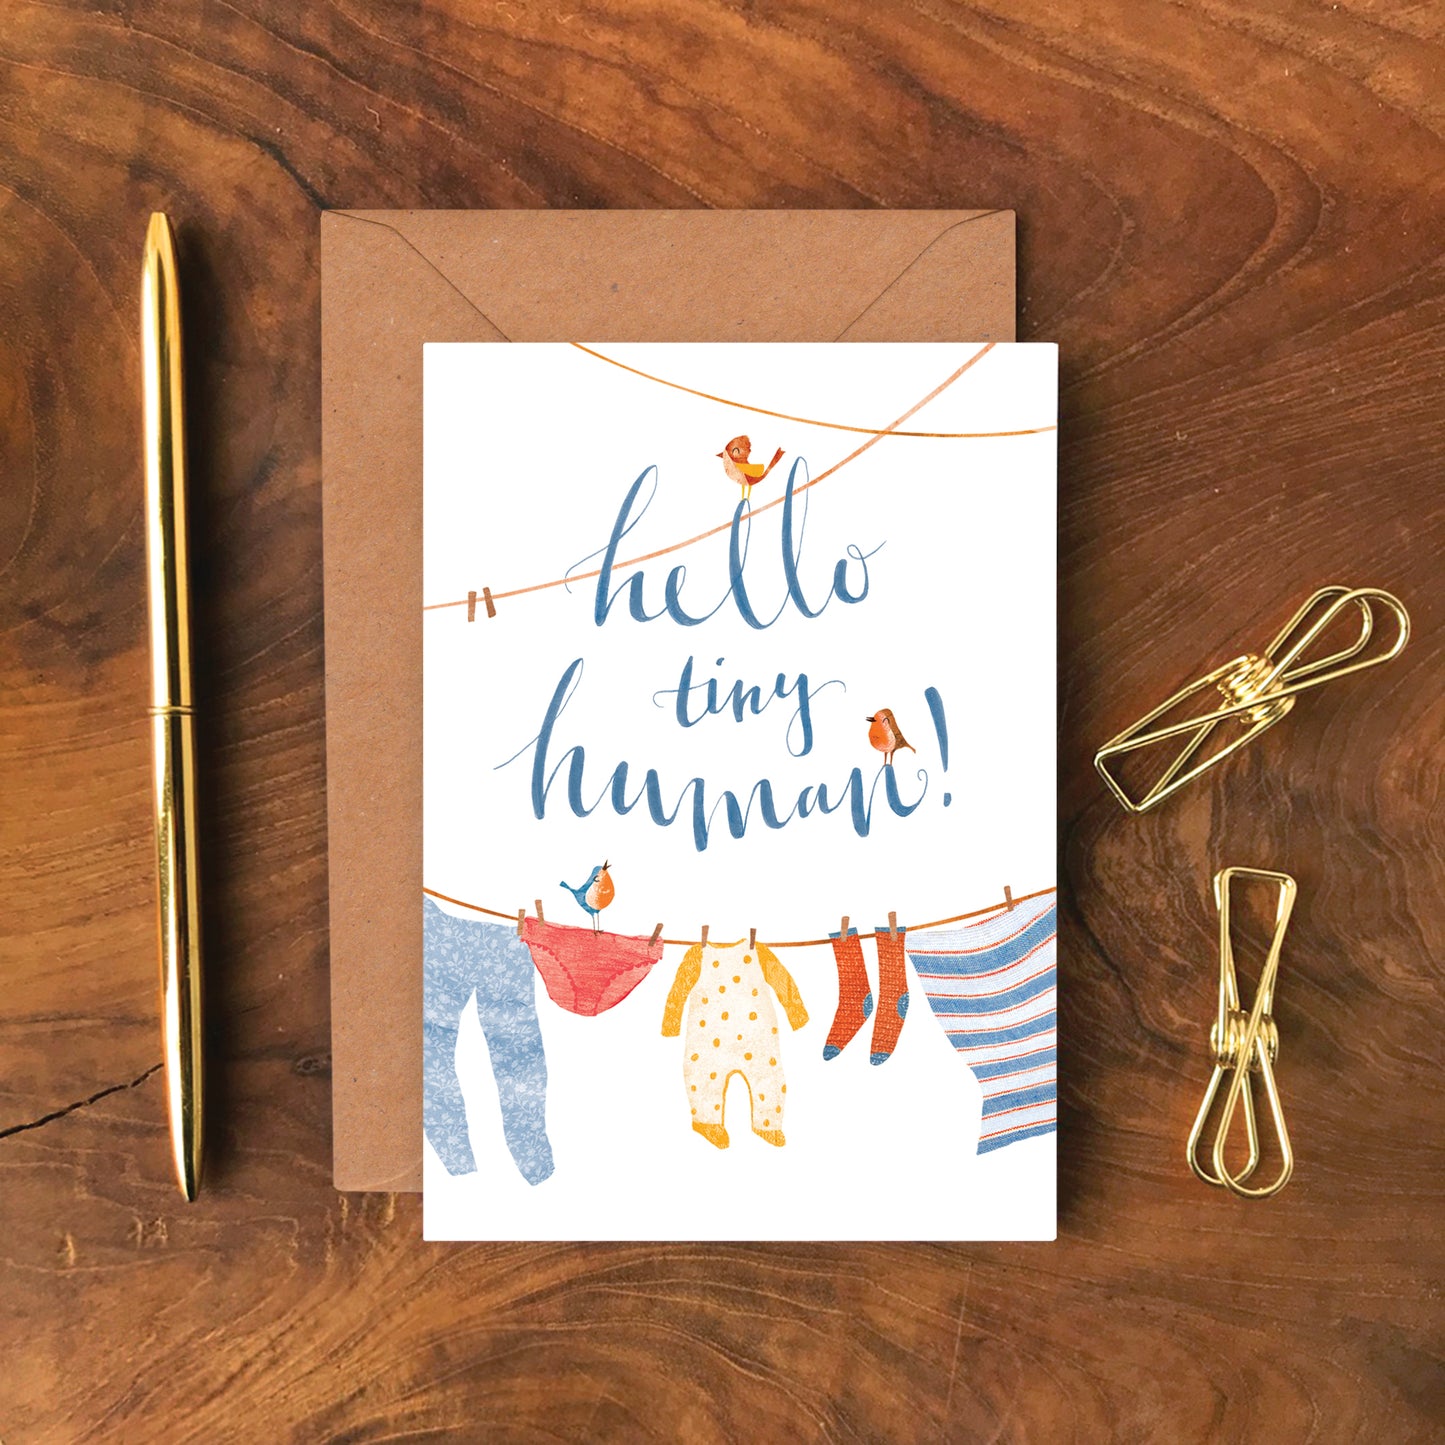 hello
tiny
human!